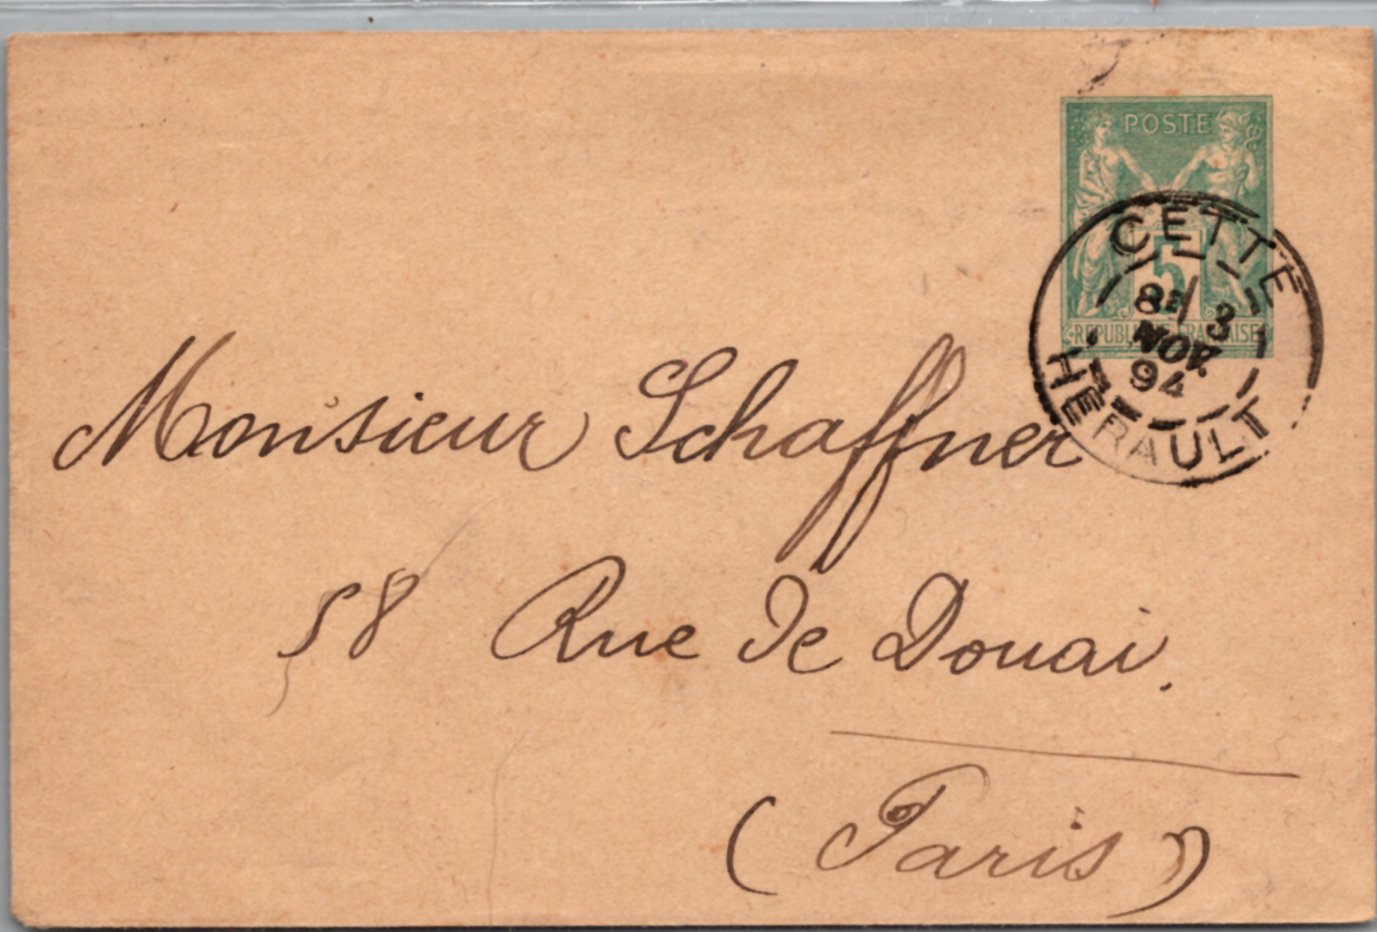 POSTE
5
REPUBLIQUE FRANCAISE
CETTE
8E 3
NOV.
94
HERAULT
Monsieur Schaffner
58 Rue de Douai.
(Paris)